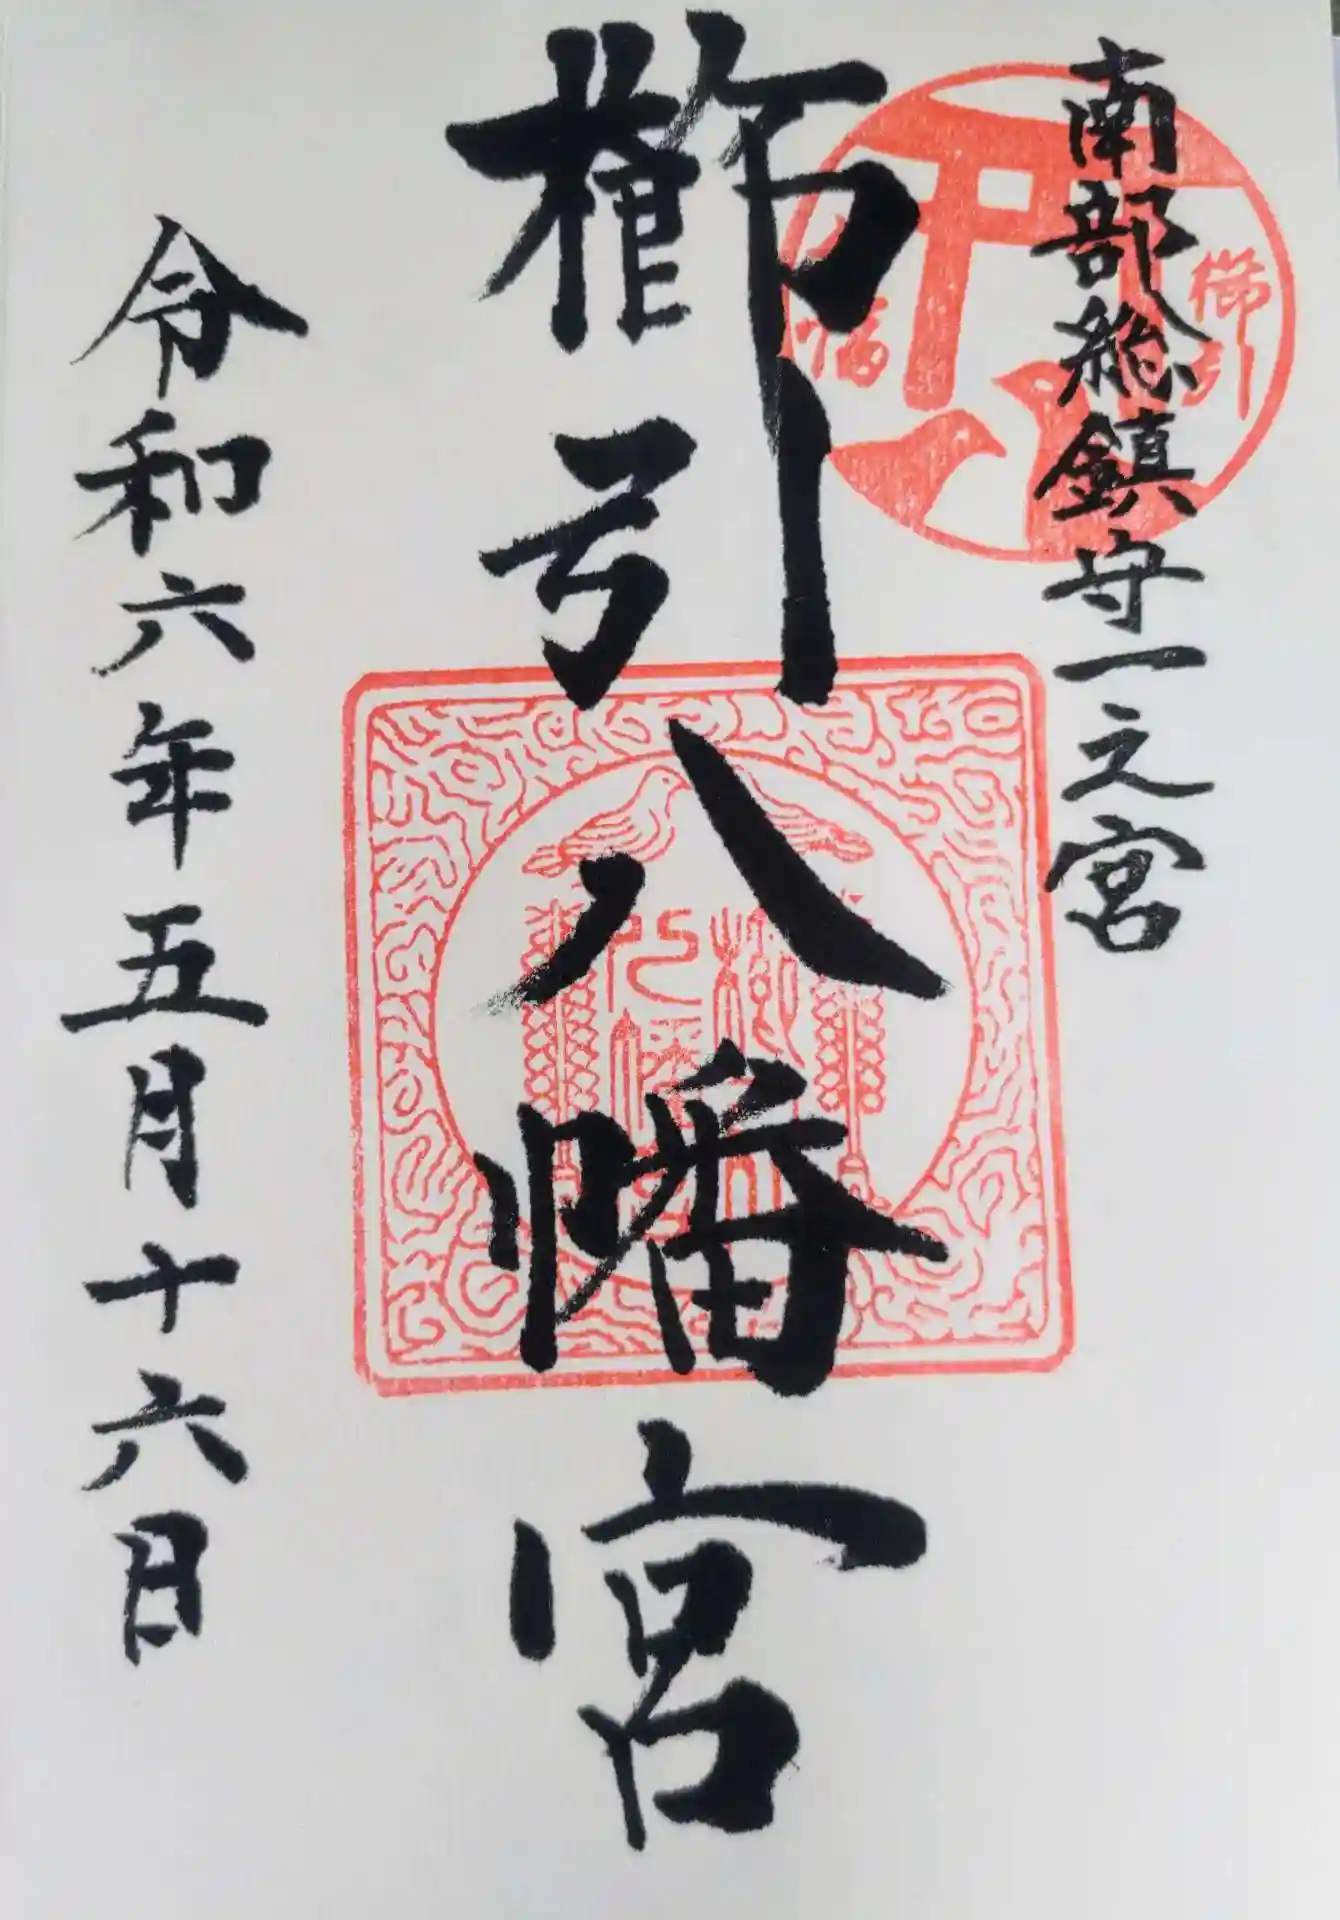 南部総鎮守一之宮
櫛引
八幡
櫛引八幡宮
令和六年五月十六日